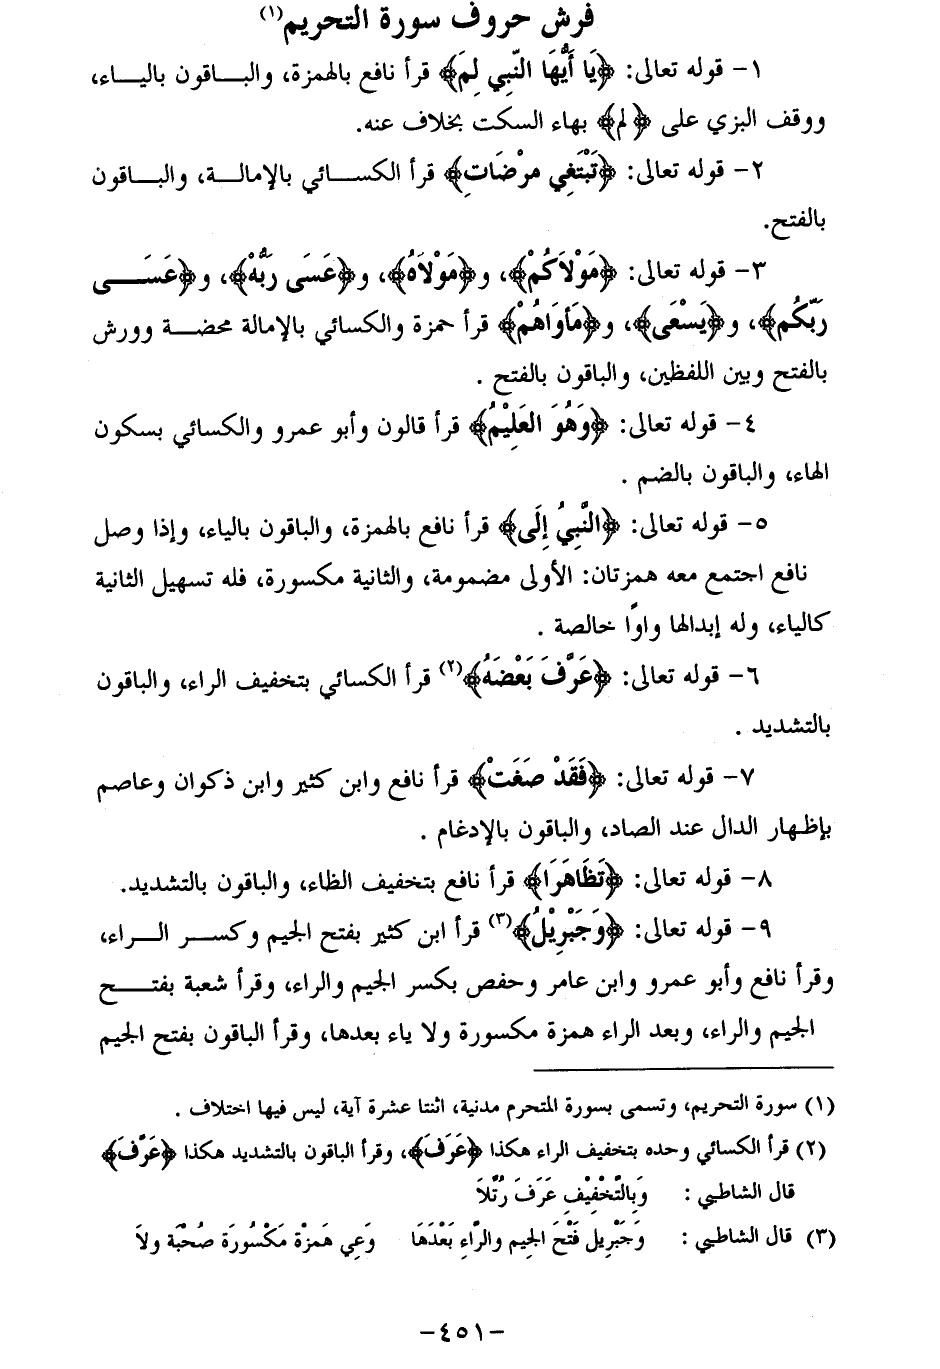 فرش حروف سورة التحريم(١)
١- قوله تعالى: ﴿يَا أَيُّهَا النَّبِي لِمَ﴾ قرأ نافع بالهمزة، والباقون بالياء،
ووقف البزي على ﴿لم﴾ بهاء السكت بخلاف عنه.
٢- قوله تعالى: ﴿تَبْتَغِي مرْضَاتِ﴾ قرأ الكسائي بالإمالة، والباقون
بالفتح.
٣- قوله تعالى: ﴿مَوْلاَكُمْ﴾، و﴿مَوْلاَهُ﴾، و﴿عَسَى رَبُّهُ﴾، و﴿عَسَى
رَبّكُم﴾، و﴿يَسْعَى﴾، و﴿مَأوَاهُمْ﴾ قرأ حمزة والكسائي بالإمالة محضة وورش
بالفتح وبين اللفظين، والباقون بالفتح .
٤- قوله تعالى: ﴿وَهُوَ العَلِيْمُ﴾ قرأ قالون وأبو عمرو والكسائي بسكون
الهاء، والباقون بالضم .
٥- قوله تعالى: ﴿النَّبِيُ إِلَى﴾ قرأ نافع بالهمزة، والباقون بالياء، وإذا وصل
نافع اجتمع معه همزتان: الأولى مضمومة، والثانية مكسورة، فله تسهيل الثانية
كالياء، وله إبدالها واوًا خالصة .
٦- قوله تعالى: ﴿عَرَّفَ بَعْضَهُ﴾(٢) قرأ الكسائي بتخفيف الراء، والباقون
بالتشديد .
٧- قوله تعالى: ﴿فَقَدْ صَغَتْ﴾ قرأ نافع وابن كثير وابن ذكوان وعاصم
بإظهار الدال عند الصاد، والباقون بالإدغام .
٨- قوله تعالى: ﴿تَظَاهَرَا﴾ قرأ نافع بتخفيف الظاء، والباقون بالتشديد.
٩- قوله تعالى: ﴿وَجَبْرِيْلُ﴾(٣) قرأ ابن كثير بفتح الجيم وكسر الراء،
وقرأ نافع وأبو عمرو وابن عامر وحفص بكسر الجيم والراء، وقرأ شعبة بفتح
الجيم والراء، وبعد الراء همزة مكسورة ولا ياء بعدها، وقرأ الباقون بفتح الجيم
(١) سورة التحريم، وتسمى بسورة المتحرم مدنية، اثنتا عشرة آية، ليس فيها اختلاف .
(٢) قرأ الكسائي وحده بتخفيف الراء هكذا ﴿عَرَفَ﴾، وقرأ الباقون بالتشديد هكذا ﴿عَرَّفَ﴾
قال الشاطبي : وَبِالتَّخْفِيْفِ عَرَفَ رُتِّلاَ
(٣) قال الشاطبي : وَجَبْرِيل فَتْحَ الجِيم والرَّاءِ بَعْدَهَا وَعِي هَمزْة مَكْسُورَة صُحْبَة ولاَ
-٤٥١-